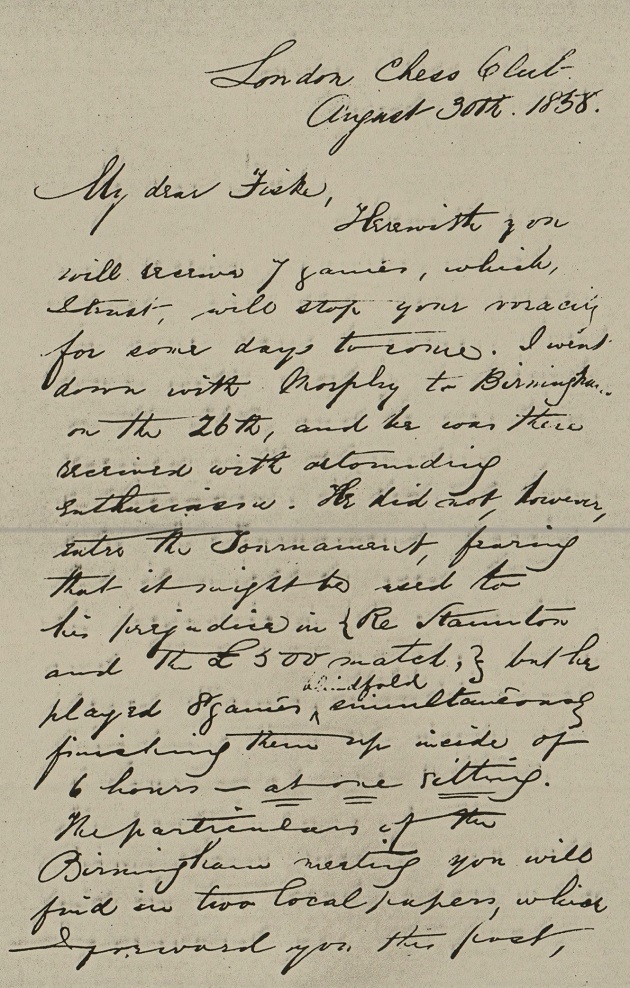 London Chess Club.
August 30th. 1858.
My dear Fiske,
Herewith you
will receive 7 games, which,
I trust, will stop your voracity
for some days to come. I went
down with Morphy to Birmingham
on the 26th, and he was there
received with astounding
enthusiasm. He did not, however,
enter the Tournament, fearing
that it might be used to
his prejudice in {Re Staunton
and the £500 match;} but he
blindfold
played 8 games ^ simultaneously
finishing them up inside of
6 hours — at one sitting.
The particulars of the
Birmingham meeting you will
find in two local papers, which
I forward you this post,